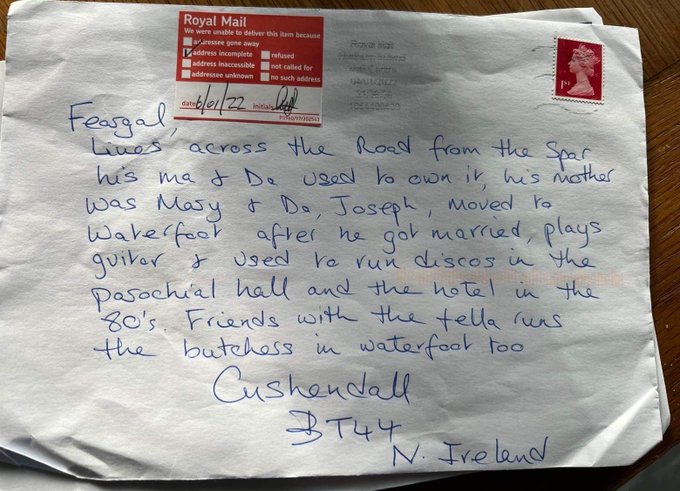 Royal Mail
We were unable to deliver this item because
addressee gone away
address incomplete
refused
address inaccessible
not called for
addressee unknown
no such address
date 6/01/22 initials
Royal Mail
1st
Feargal,
Lives across the Road from the Spar
his ma & Da used to own it, his mother
was Mary & Da, Joseph, moved to
Waterfoot after he got married, plays
guitar & used to run discos in the
parochial hall and the hotel in the
80's. Friends with the fella runs
the butchess in waterfoot too
Cushendall
BT44
N. Ireland